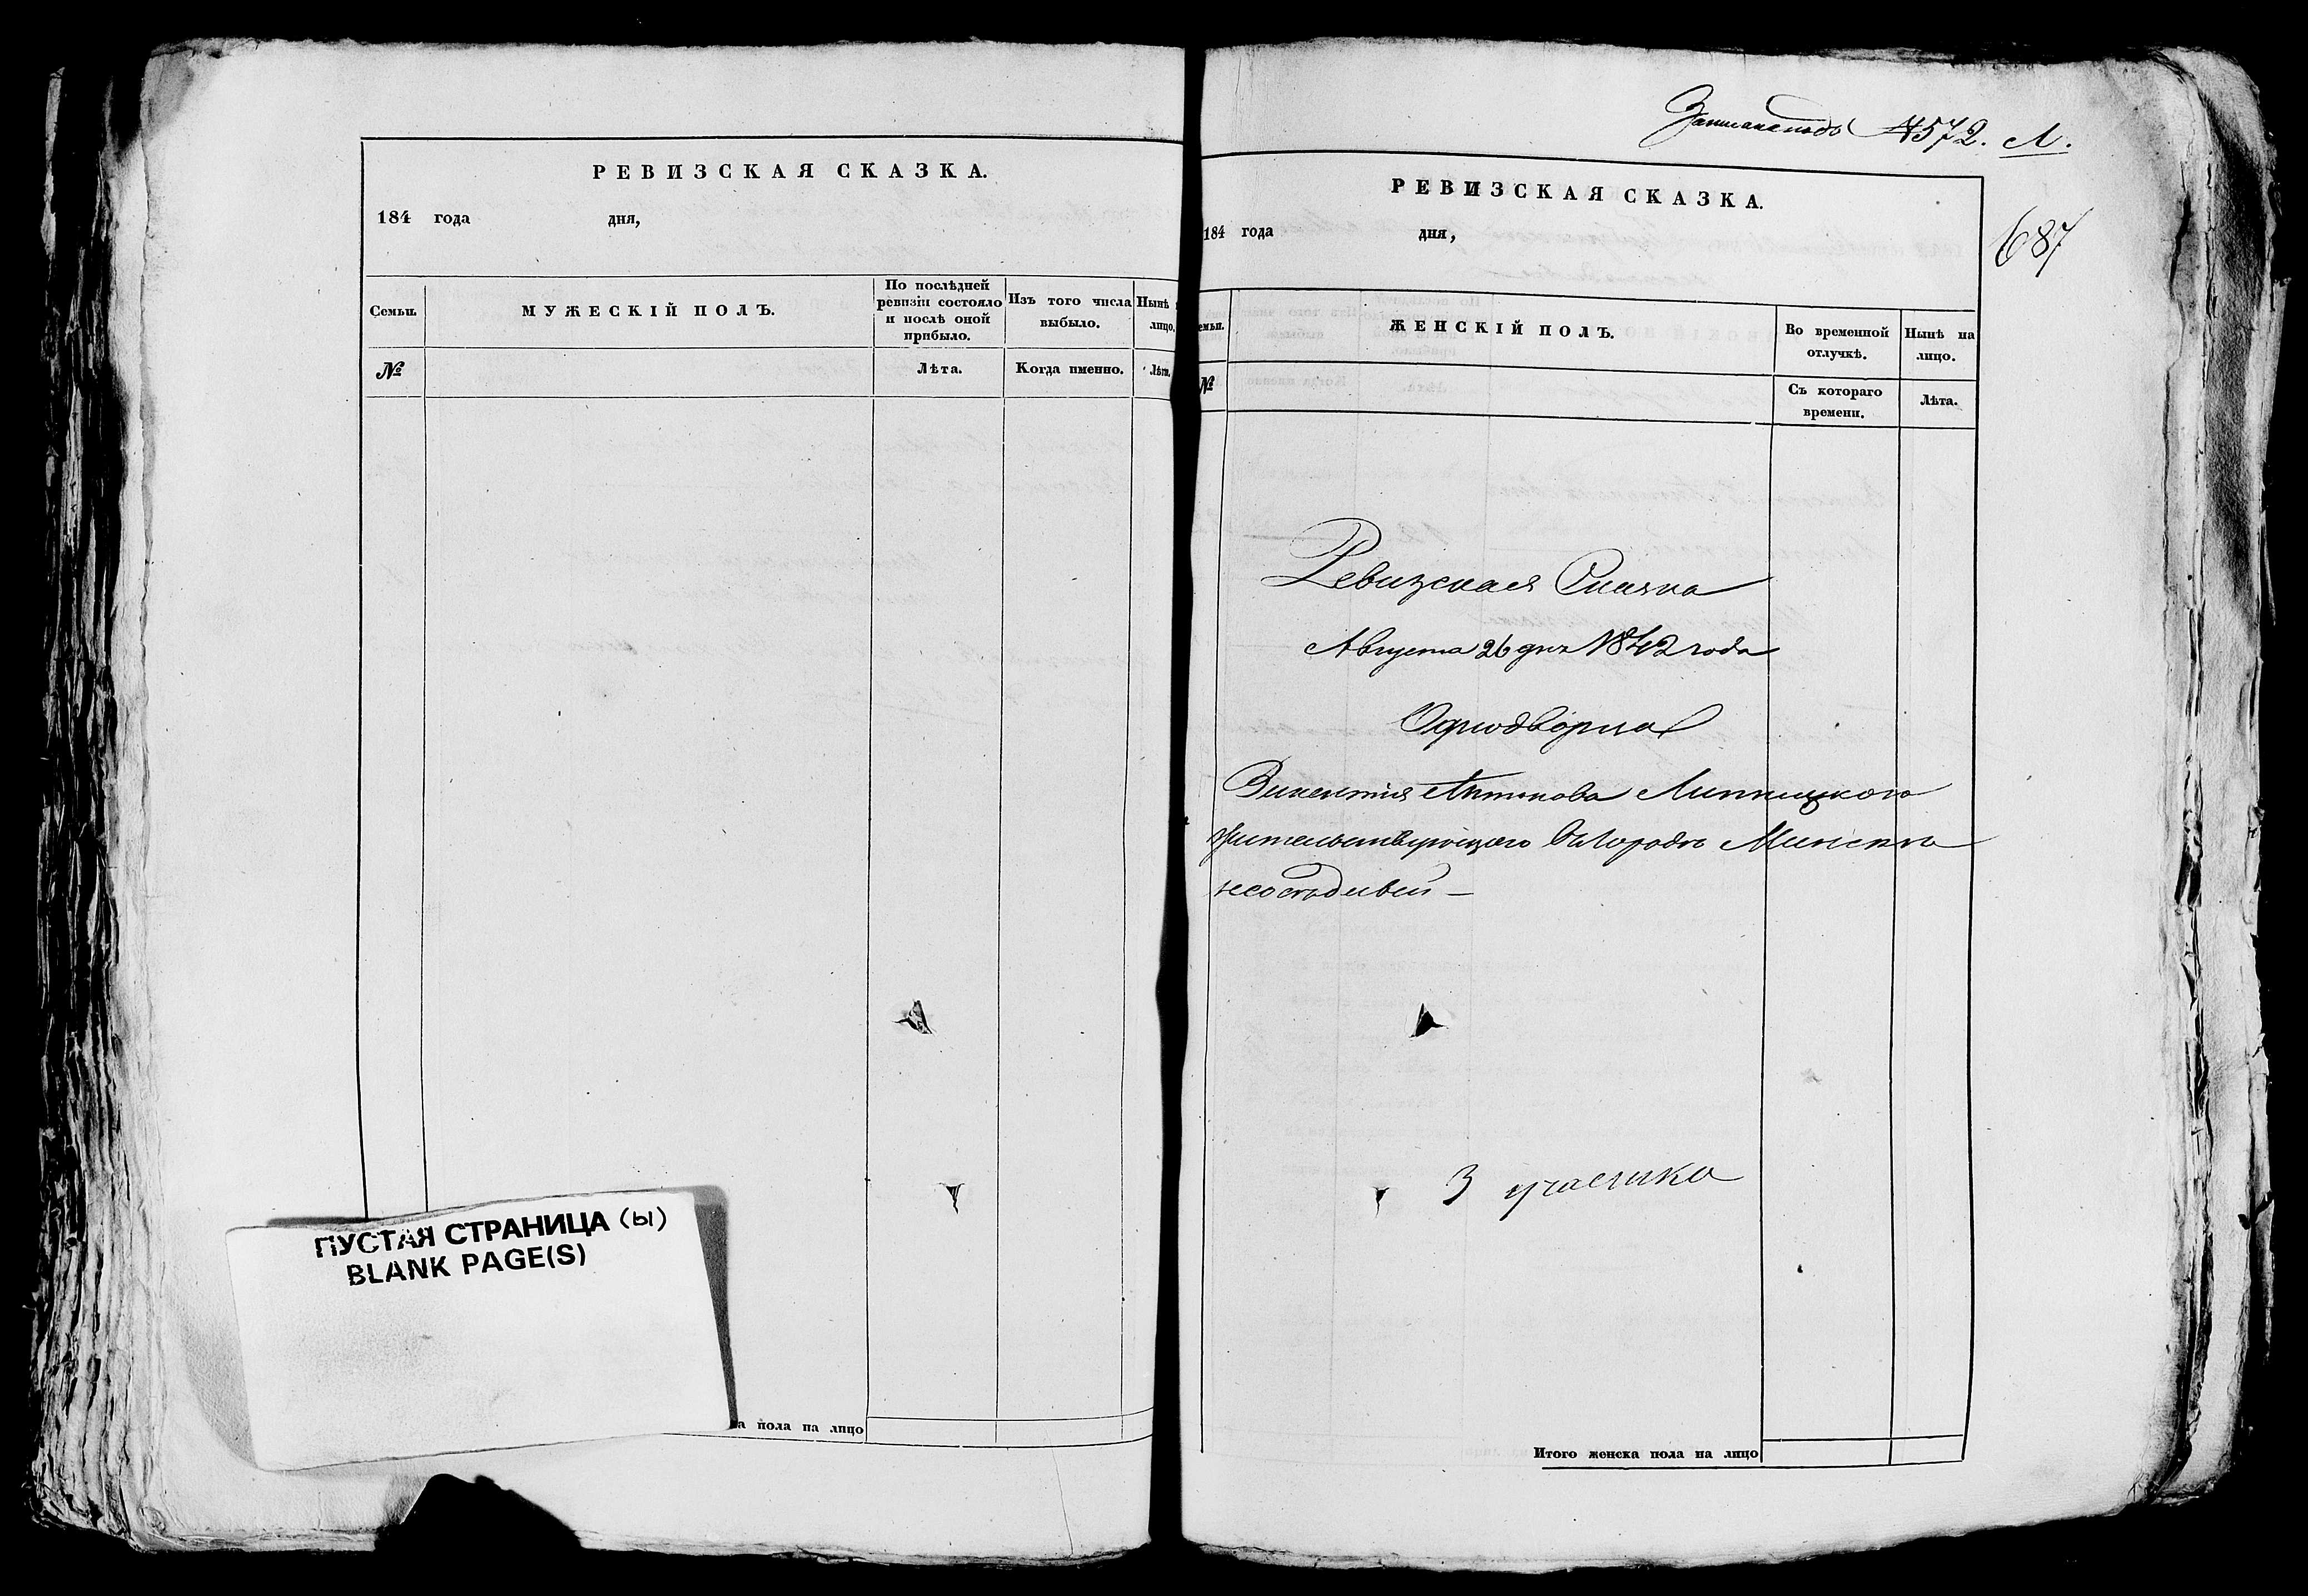 РЕВИЗСКАЯ СКАЗКА.
184 года дня,
Семьи. МУЖЕСКІЙ ПОЛЪ. По послѣдней ревизіи состояло и послѣ оной прибыло. Изъ того числа выбыло. Нынѣ лицо.
№ Лѣта. Когда именно. Лѣта.
ПУСТАЯ СТРАНИЦА (ы)
BLANK PAGE(S)
пола на лицо
№ 572. Л.
687
РЕВИЗСКАЯ СКАЗКА.
184 года дня,
емьи. ЖЕНСКІЙ ПОЛЪ. Во временной отлучкѣ. Нынѣ на лицо.
№ Съ котораго времени. Лѣта.
Ревизская Сказка
Августа 26 дня 1842 года
Однодворца
Викентія Антонова Липницкого
жительствующего въ городѣ Минскѣ
3 участка
Итого женска пола на лицо